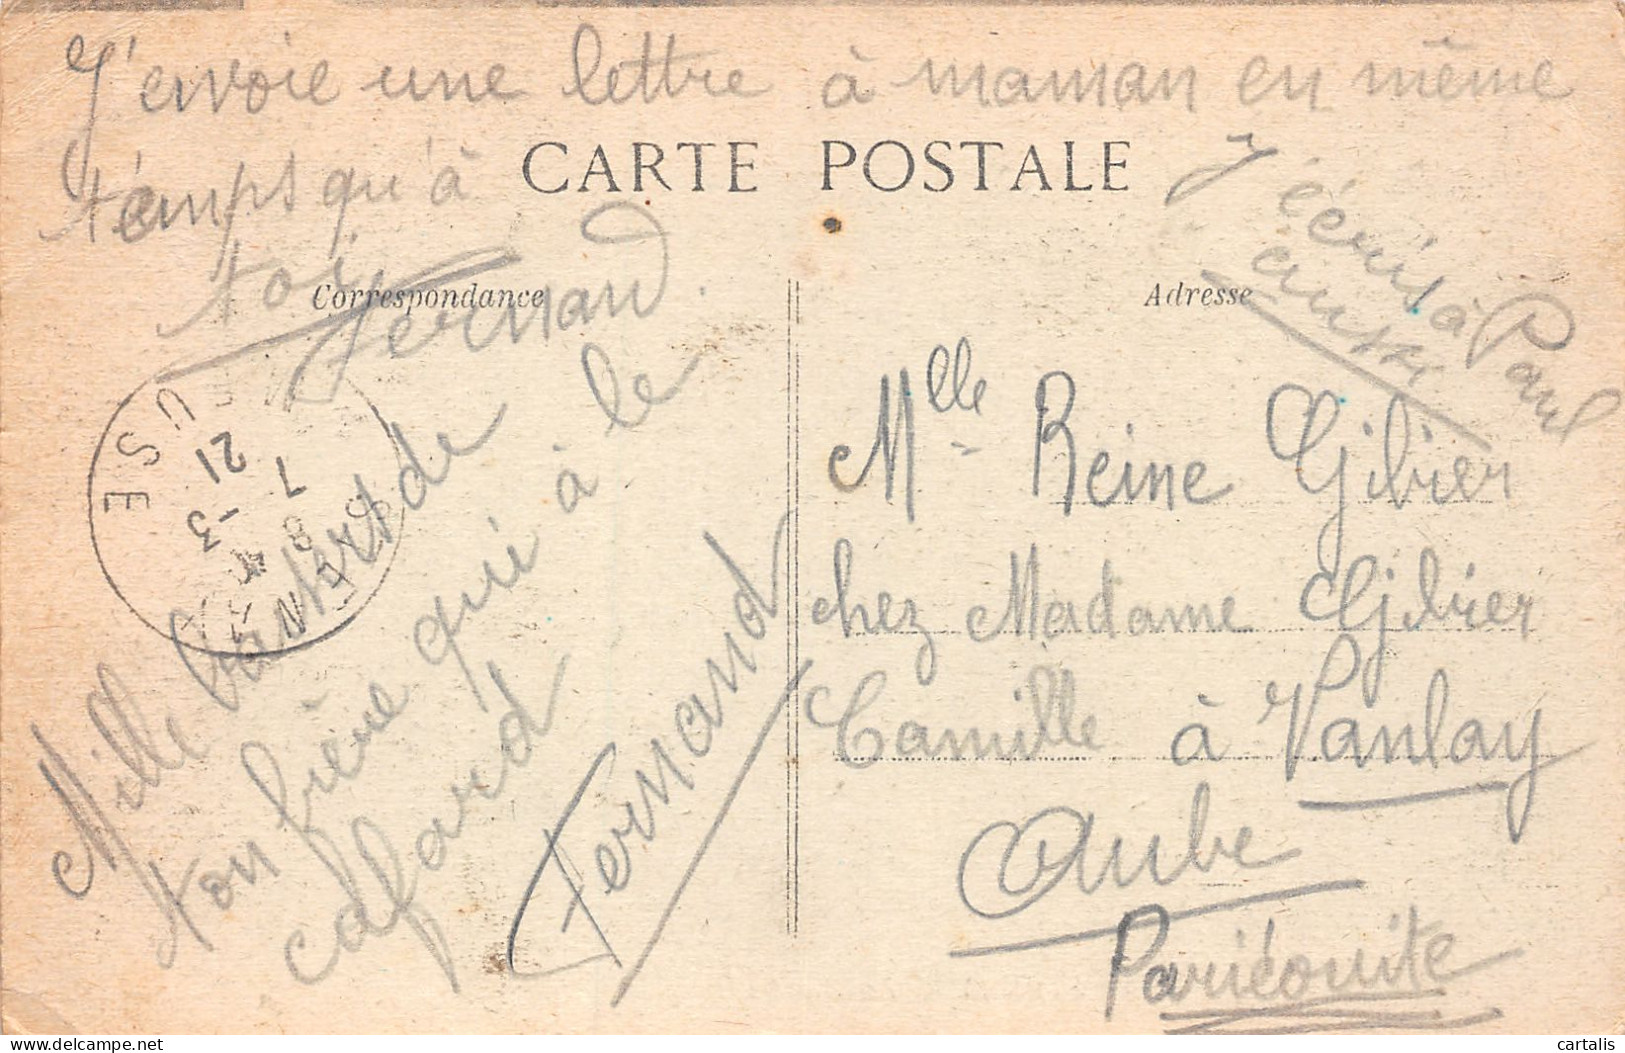 J'envoie une lettre à maman en même
temps qu'à
toi
Fernand.
CARTE POSTALE
Correspondance
Adresse
J'écris à Paul
aussi
Mille baisers de
ton frère qui à le
cafard
Fernand
Mlle Reine Gibier
chez Madame Gibier
Camille à Vanlay
Aube
Par
USE
7 - 3
21
cartalis
delcampe.net